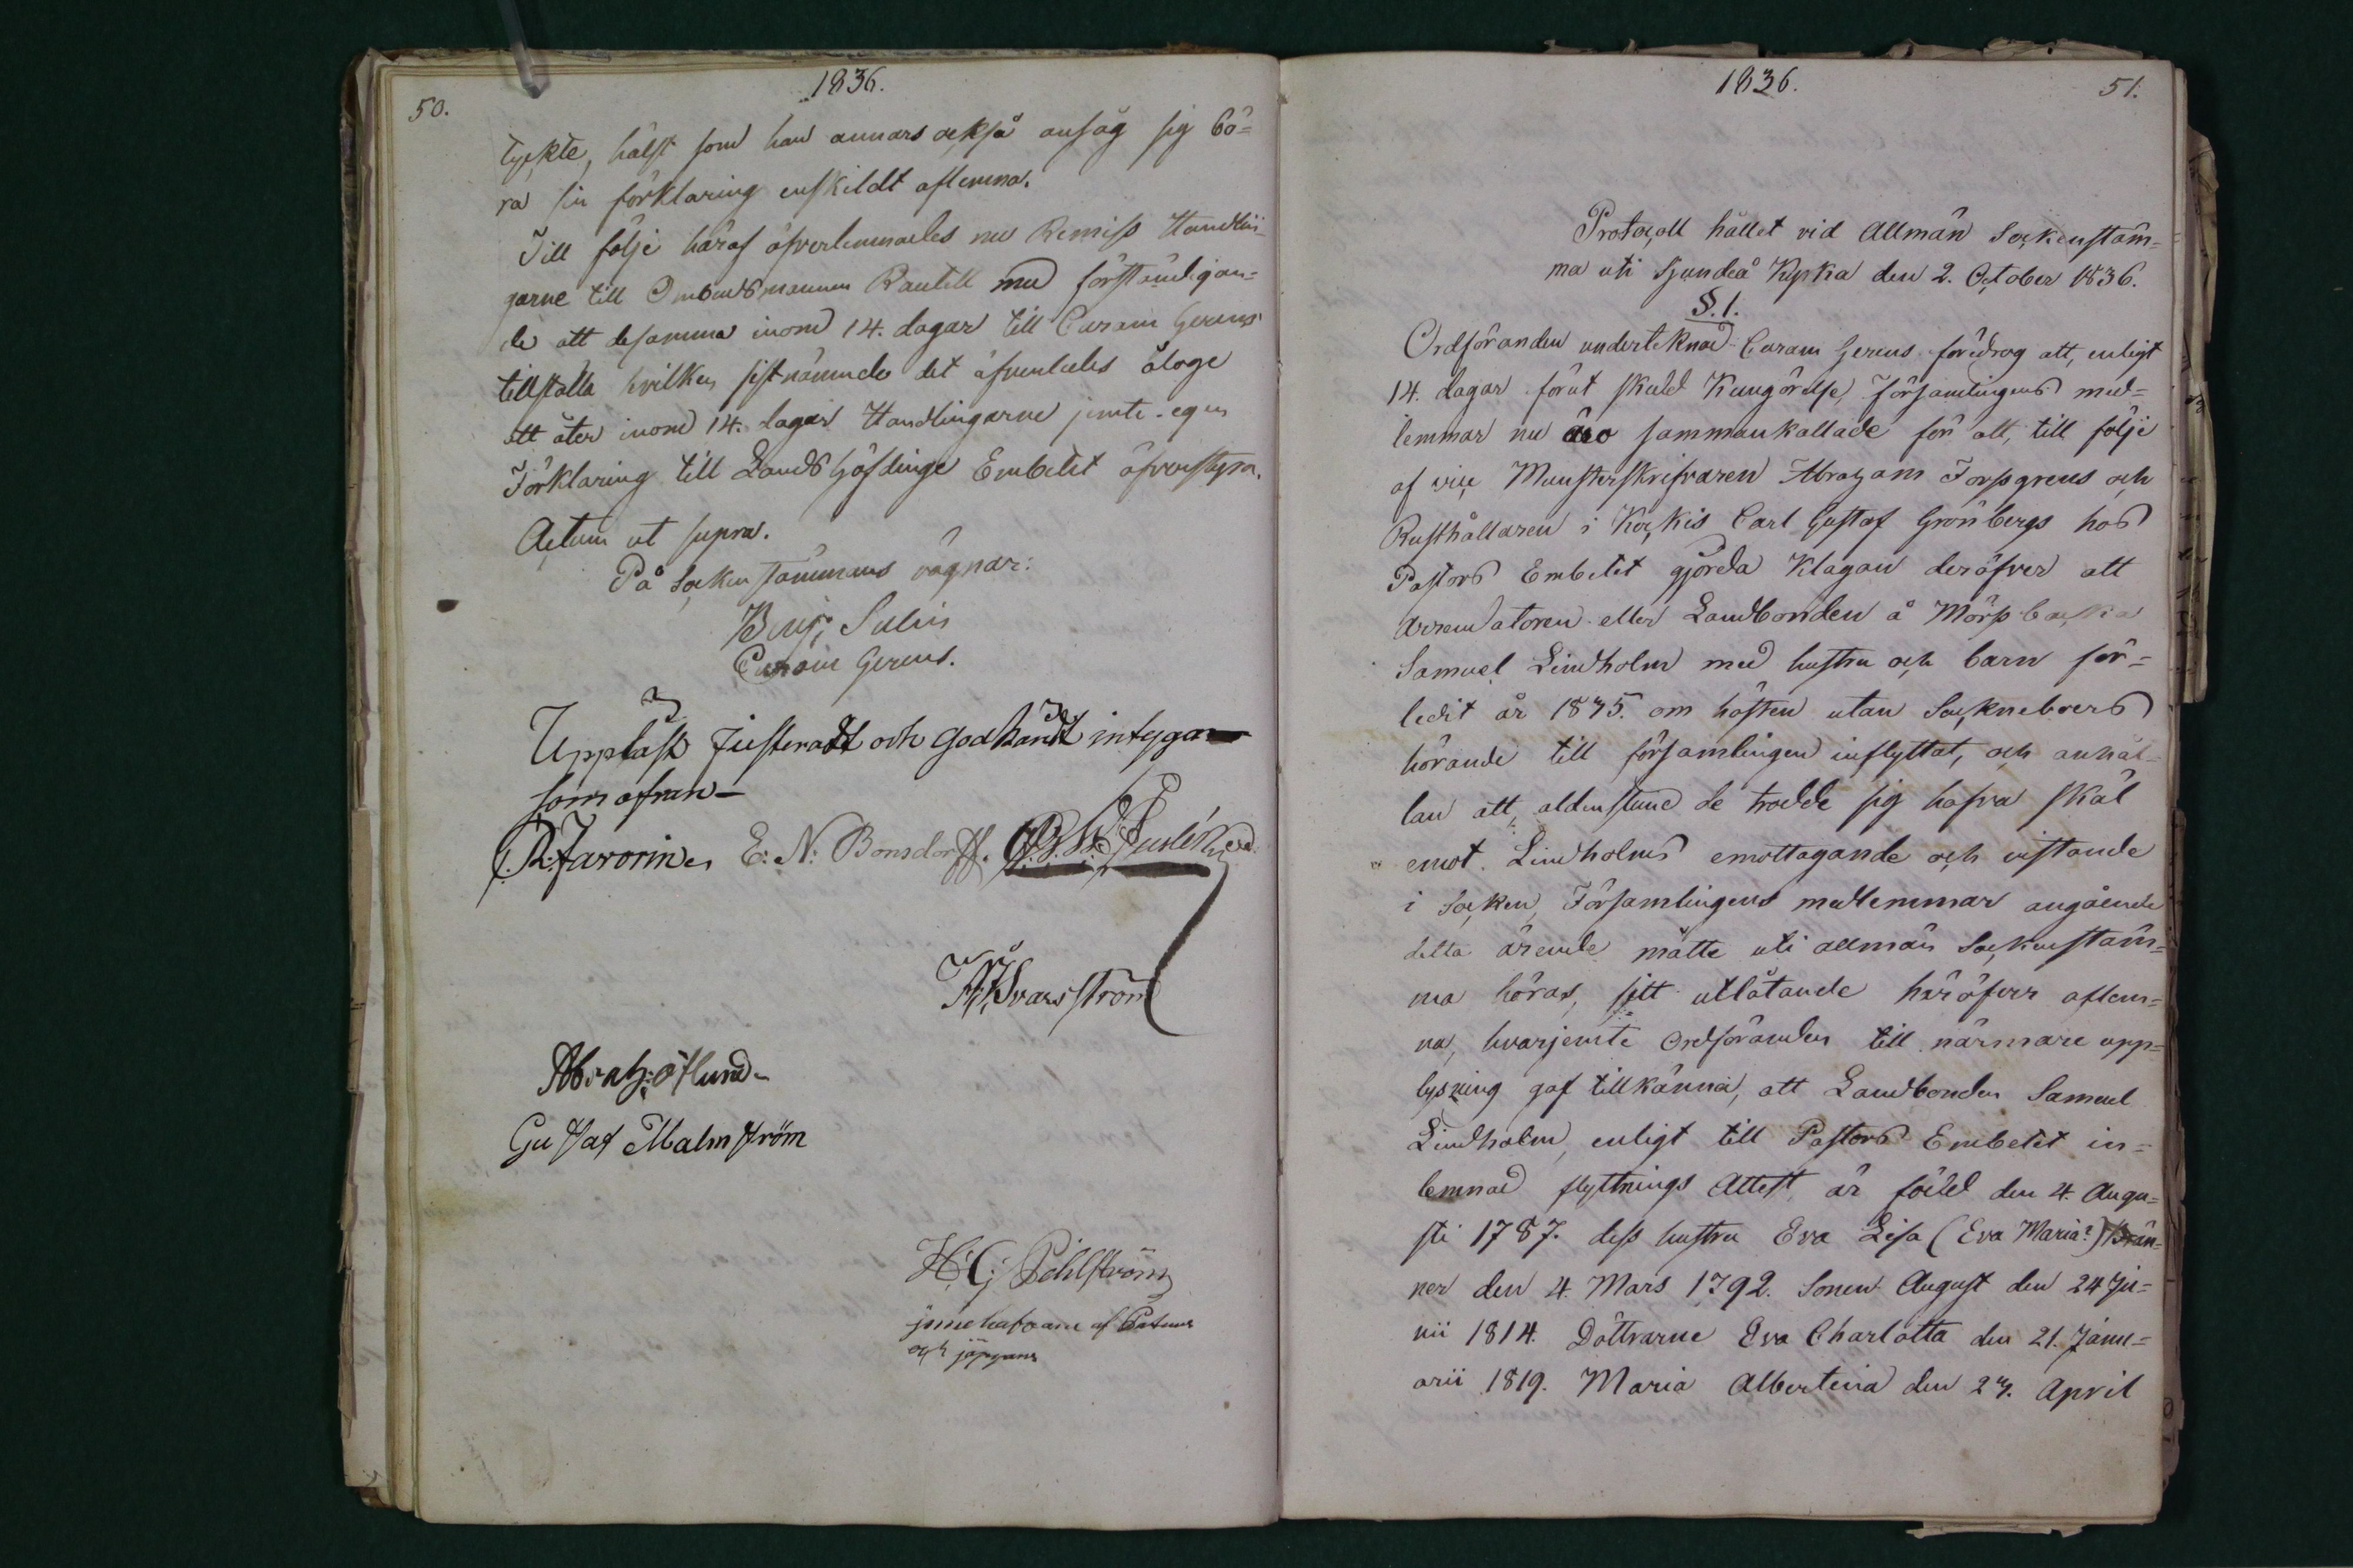 50.
1836.
tyckte, hälst som han annars också ansåg sig bö=
ra sin förklaring enskildt aflemna.
Till följe häraf öfverlemnades nu Remiss Handlin¬
garne till Ombudsmannen Rautell med förständigan=
de att desamma inom 14. dagar till Curam Gerens
tillställa hvilken sistnämnde det äfvenledes ålåge
att åter inom 14. dagar Handlingarne jemte egen
Förklaring till Landshöfdinge Embetet öfverstyra.
Actum ut supra.
På Sockenstämmans vägnar:
Benj: Sulin
Curam Gerens.
Uppläst Justeradt och Godkändt intygar
som ofvan
R. Favorin E: N: Bonsdorff.
Svarsström
Abrah: Östlund
Gustaf Malmström
H: G: Pihlström
innehafvare af
och
1836.
51.
Protocoll hållet vid Allmän Sockenstäm=
ma uti Sjundeå Kyrka den 2. October 1836.
§. 1.
Ordföranden undertecknad Curam Gerens föredrog att, enligt
14. dagar förut skedd Kungörelse, Församlingens med=
lemmar nu äro sammankallade för att, till följe
af vice Munsterskrifvaren Abraham Forssgrens och
Rusthållaren i Kockis Carl Gustaf Grönbergs hos
Pastors Embetet gjorda Klagan deröfver att
Arrendatoren eller Landbonden å Mörssbacka
Samuel Lindholm med hustru och barn för=
ledit år 1835. om hösten utan Socknebors
hörande till församlingen inflyttat, och anhål¬
lan att, aldenstund de trodde sig hafva skäl
emot Lindholms emottagande och vistande
i Socken, Församlingens medlemmar angående
detta ärende måtte uti allmän Sockenstäm=
ma höras, sitt utlåtande häröfver aflem=
na, hvarjemte Ordföranden till närmare upp=
lysning gaf tillkänna, att Landbonden Samuel
Lindholm, enligt till Pastors Embetet in=
lemnad flyttnings Attest, är född den 4. Augu=
sti 1787. dess hustru Eva Lisa (Eva Maria?) Brän¬
ner den 4. Mars 1792. Sonen August den 24 Ju=
nii 1814. Döttrarne Eva Charlotta den 21. Janu=
arii 1819. Maria Albertina den 27. April